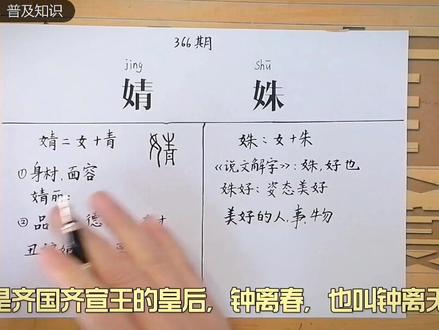 普及知识
366期
jìng
婧
婧=女+青
①身材、面容
婧丽:
②品 德
丑
shū
姝
姝:女+朱
《说文解字》:姝,好也
姝好:姿态美好
美好的人、事、物
是齐国齐宣王的皇后,钟离春,也叫钟离无